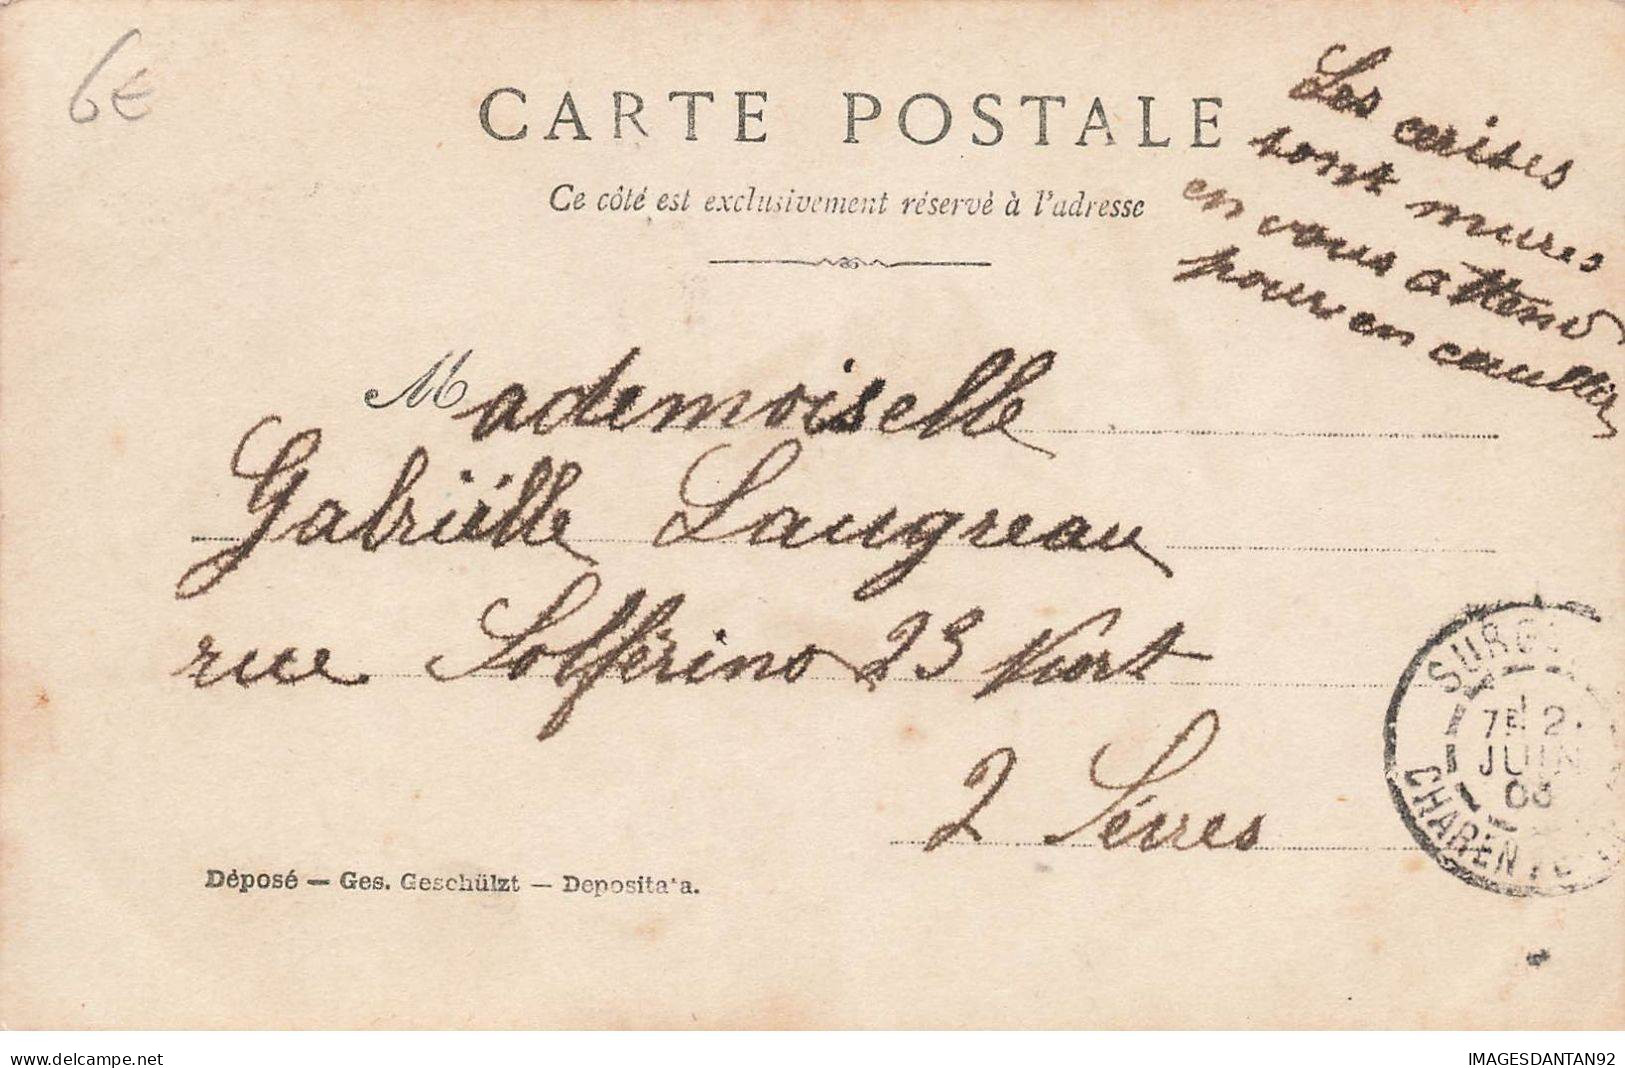 6€
CARTE POSTALE
Ce côté est exclusivement réservé à l'adresse
Les cerises
sont mures
en vous attend
pour en cceuillir
Mademoiselle
Gabriëlle Laugreau
rue Solférino 23 Niort
2 Sévres
SURG
7E 2
JUIN
CHARENTE
Déposé — Ges. Geschülzt — Deposita'a.
delcampe.net
IMAGESDANTAN92